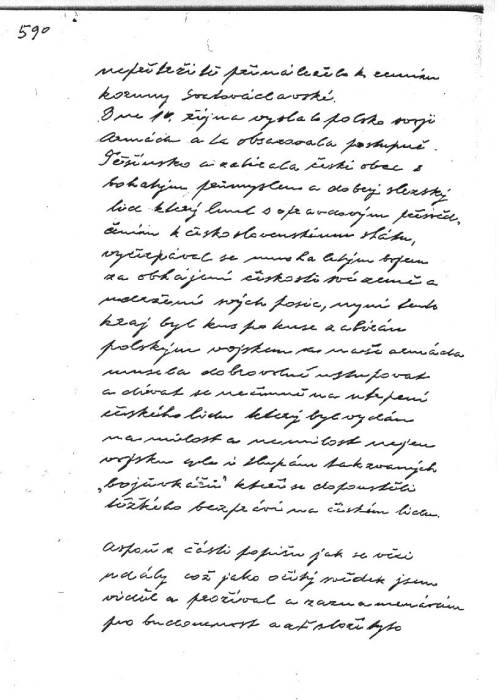 590
nepřetržitě přináleželo k zemím
koruny Svatováclavské.
Dne 10. října vyslalo polsko svoji
Armádu a ta obsazovala postupně.
Těšínsko a zabírala české obce s
bohatým průmyslem a dobrý slezský
lid který lnul s opravdovým přesvěd-
čením k československému státu,
vyčerpával se mnoha letým bojem
za obhájení českosti své země a
udržení svých posic, nyní tento
kraj byl kus po kuse zabírán
polským vojskem a naše armáda
musela dobrovolně ustupovat
a dívat se nečinně na utrpení
českého lidu který byl vydán
na milost a nemilost nejen
vojsku ale i tlupám takzvaných
„bojůvkářů" kteří se dopouštěli
těžkého bezpráví na českém lidu.
Aspoň z části popíšu jak se věci
udály což jako očitý svědek jsem
viděl a prožíval a zaznamenávám
pro budoucnost a ať slouží tyto